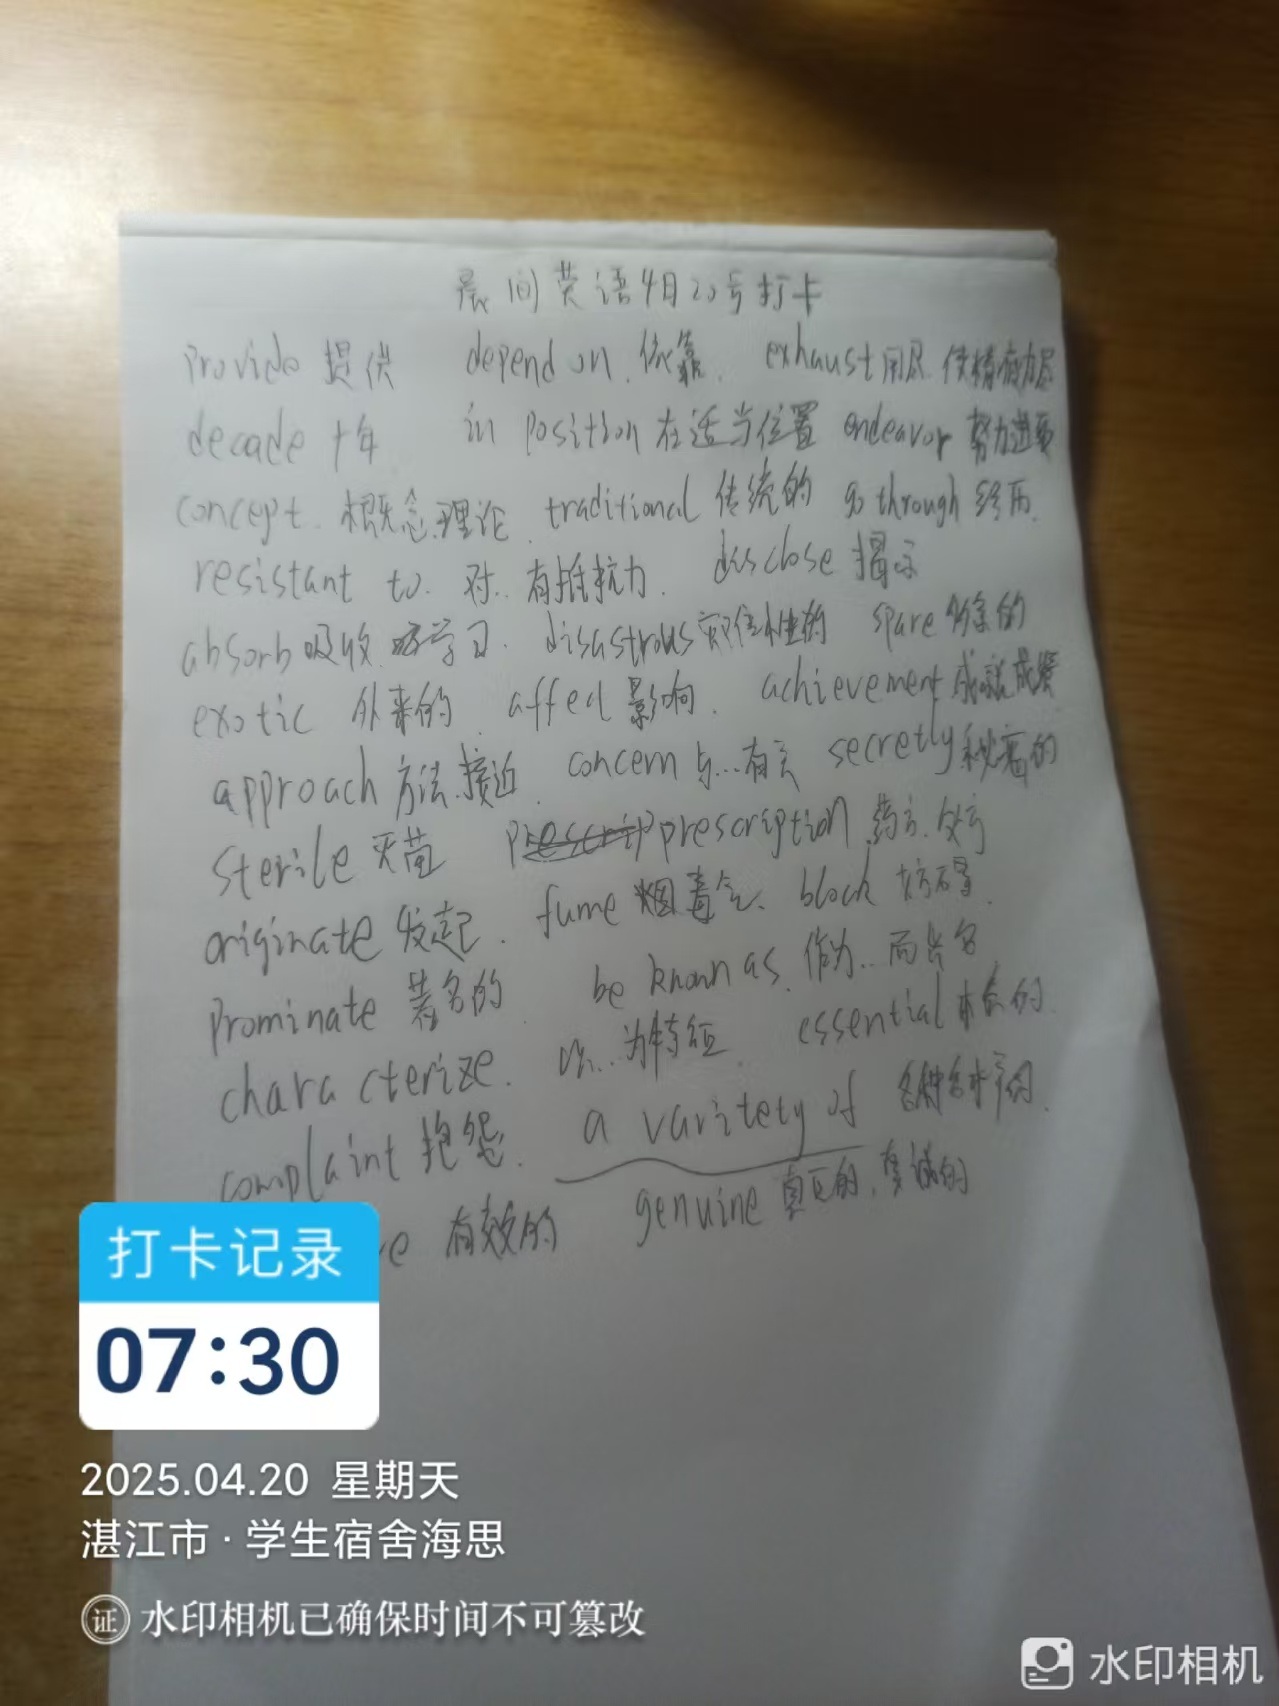 晨间英语4月20号打卡
provide 提供 depend on. 依靠. exhaust 用尽. 使精疲力尽
decade 十年 in position 在适当位置 endeavor 努力
concept. 概念.理论. traditional 传统的 go through 经历.
resistant to. 对..有抵抗力. disclose 揭示
absorb 吸收. 学习. disastrous 灾难性的 spare 多余的
exotic 外来的. affect 影响. achievement 成就成绩
approach 方法.接近. concern 与...有关 secretly 秘密的
sterile 灭菌 prescription 药方.处方
originate 发起. fume 烟毒气. block 妨碍.
prominate 著名的. be known as. 作为..而出名
characterize. 以...为特征. essential 本质的.
complaint 抱怨. a varitety of 各种各样的.
ve 有效的 genuine 真正的,真诚的
打卡记录
07:30
2025.04.20 星期天
湛江市·学生宿舍海思
证 水印相机已确保时间不可篡改
水印相机